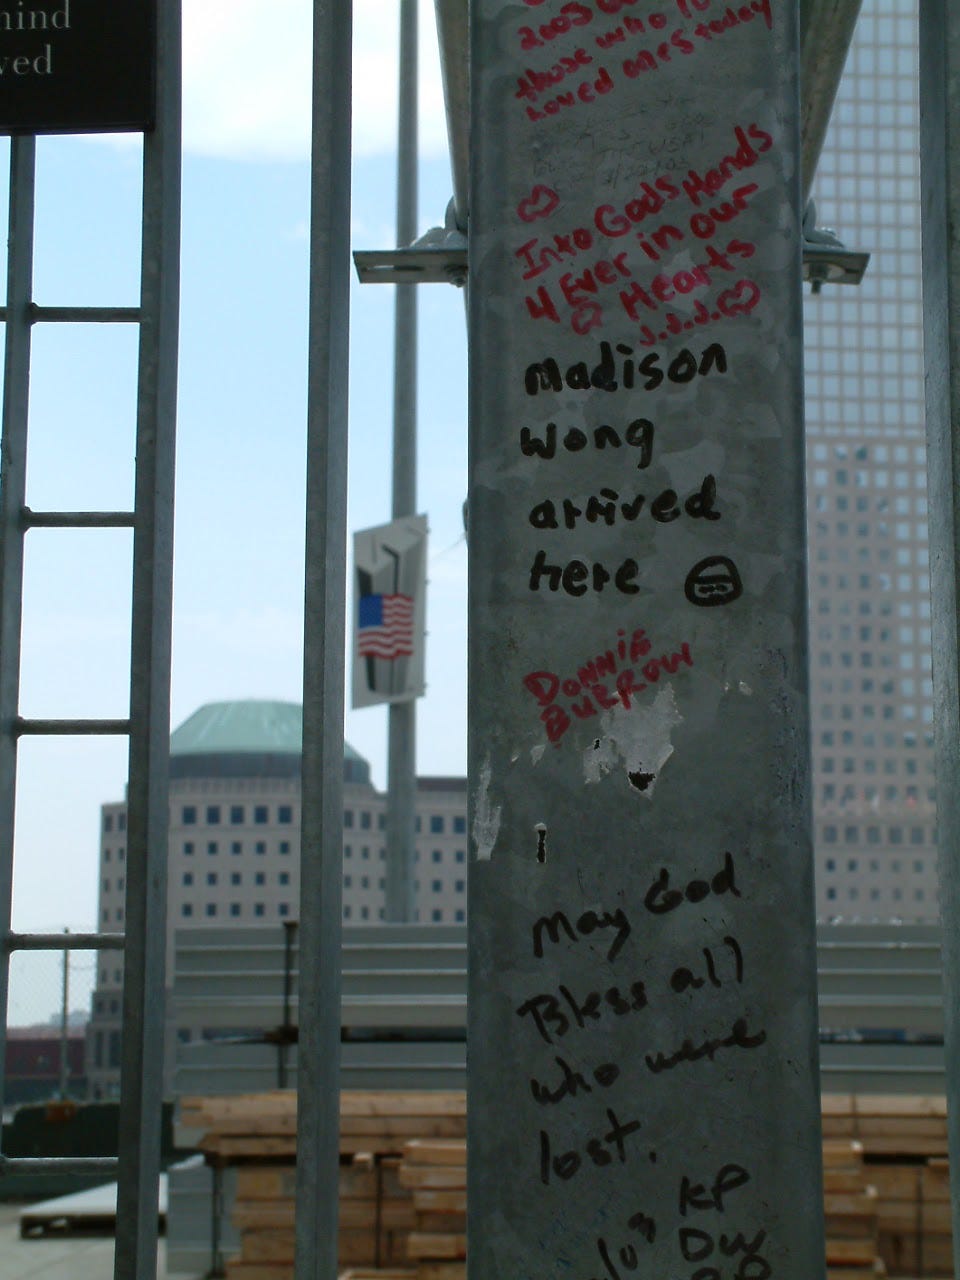 hind
ved
2003
those who lo
Loved ones today
Into Gods Hands
4 Ever in our
Hearts
J.J.J.
madison
wong
arrived
here
DONNIE
BURROW
May God
Bless all
who were
lost.
KP
DW